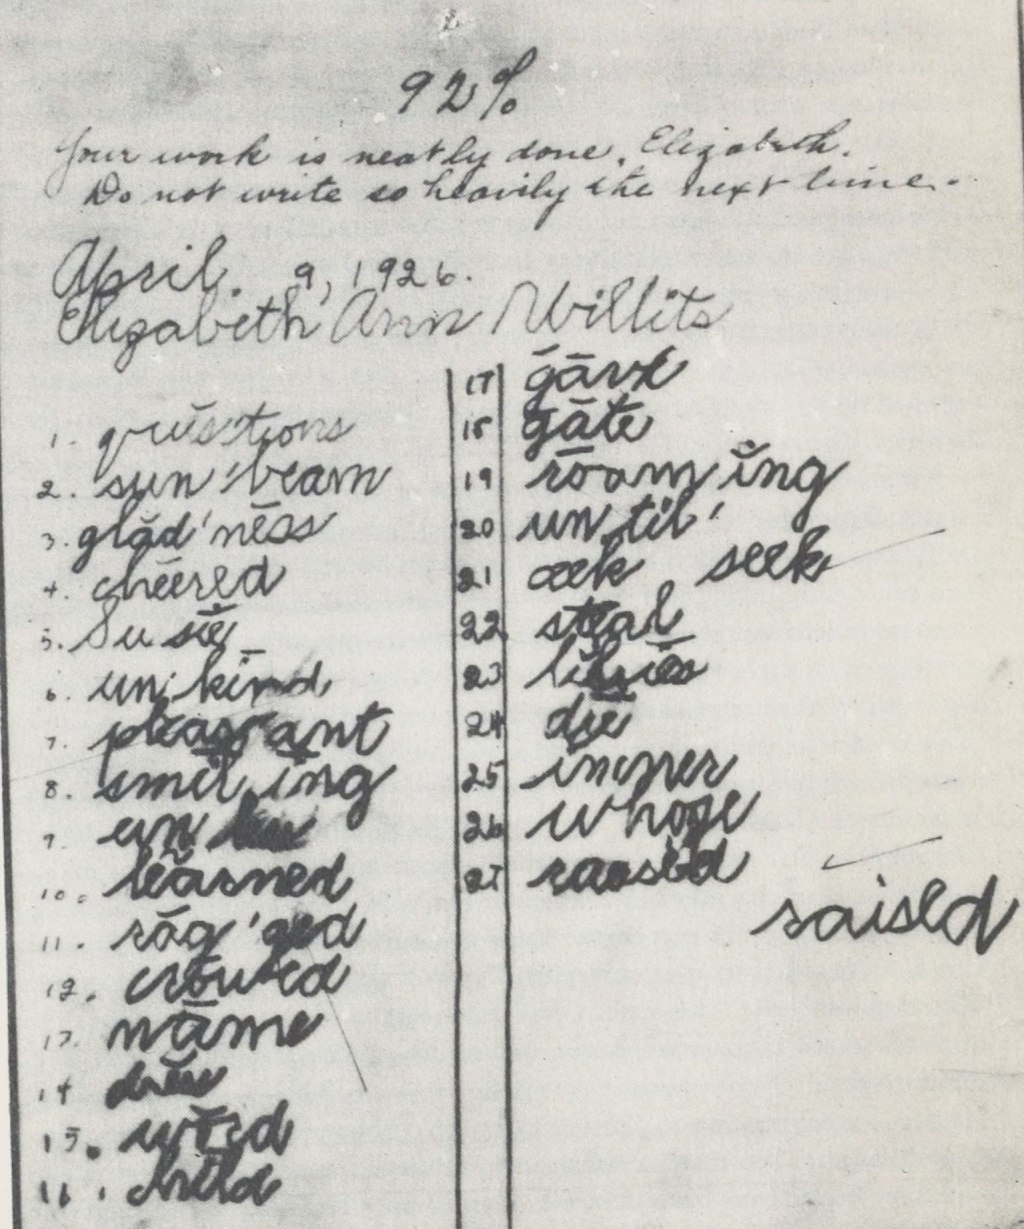 92%
Your work is neatly done, Elizabeth.
Do not write so heavily the next time.
April. 9, 1926.
Elizabeth Ann Willits
1. quĕstions
2. sun'beam
3. glăd'nĕss
4. cheēred
5. Su sīe
6. un kīnd
7. pleas'ant
8. smīl ing
9. un
10. leărned
11. răg'ged
12. crowed
13. nāme
14 drew
15. word
16. child
17 gāve
18 gāte
19 rōam ĭng
20 un til'
21 seek
22. stēal
23
24 dīe
25 inner
26 whose
27 raised